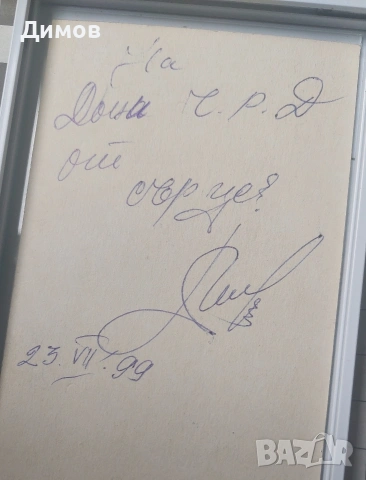 Димов
На
Дона Ч. Р. Д
от
сърце!
23. VII. 99
BAZAR